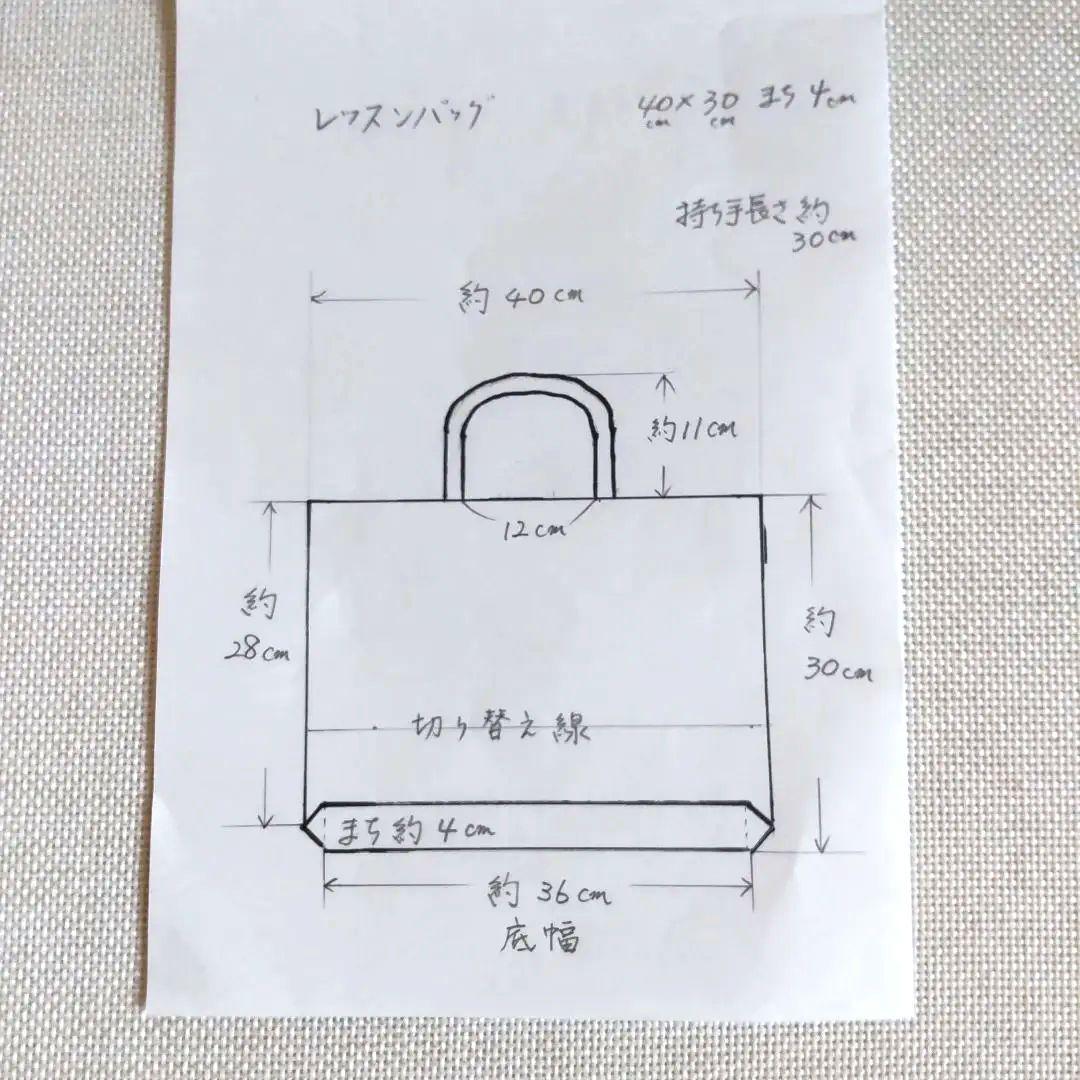 レッスンバッグ
40cm×30cm まち4cm
持ち手長さ約
30cm
約40cm
約11cm
12cm
約
28cm
約
30cm
切り替え線
まち約4cm
約36cm
底幅